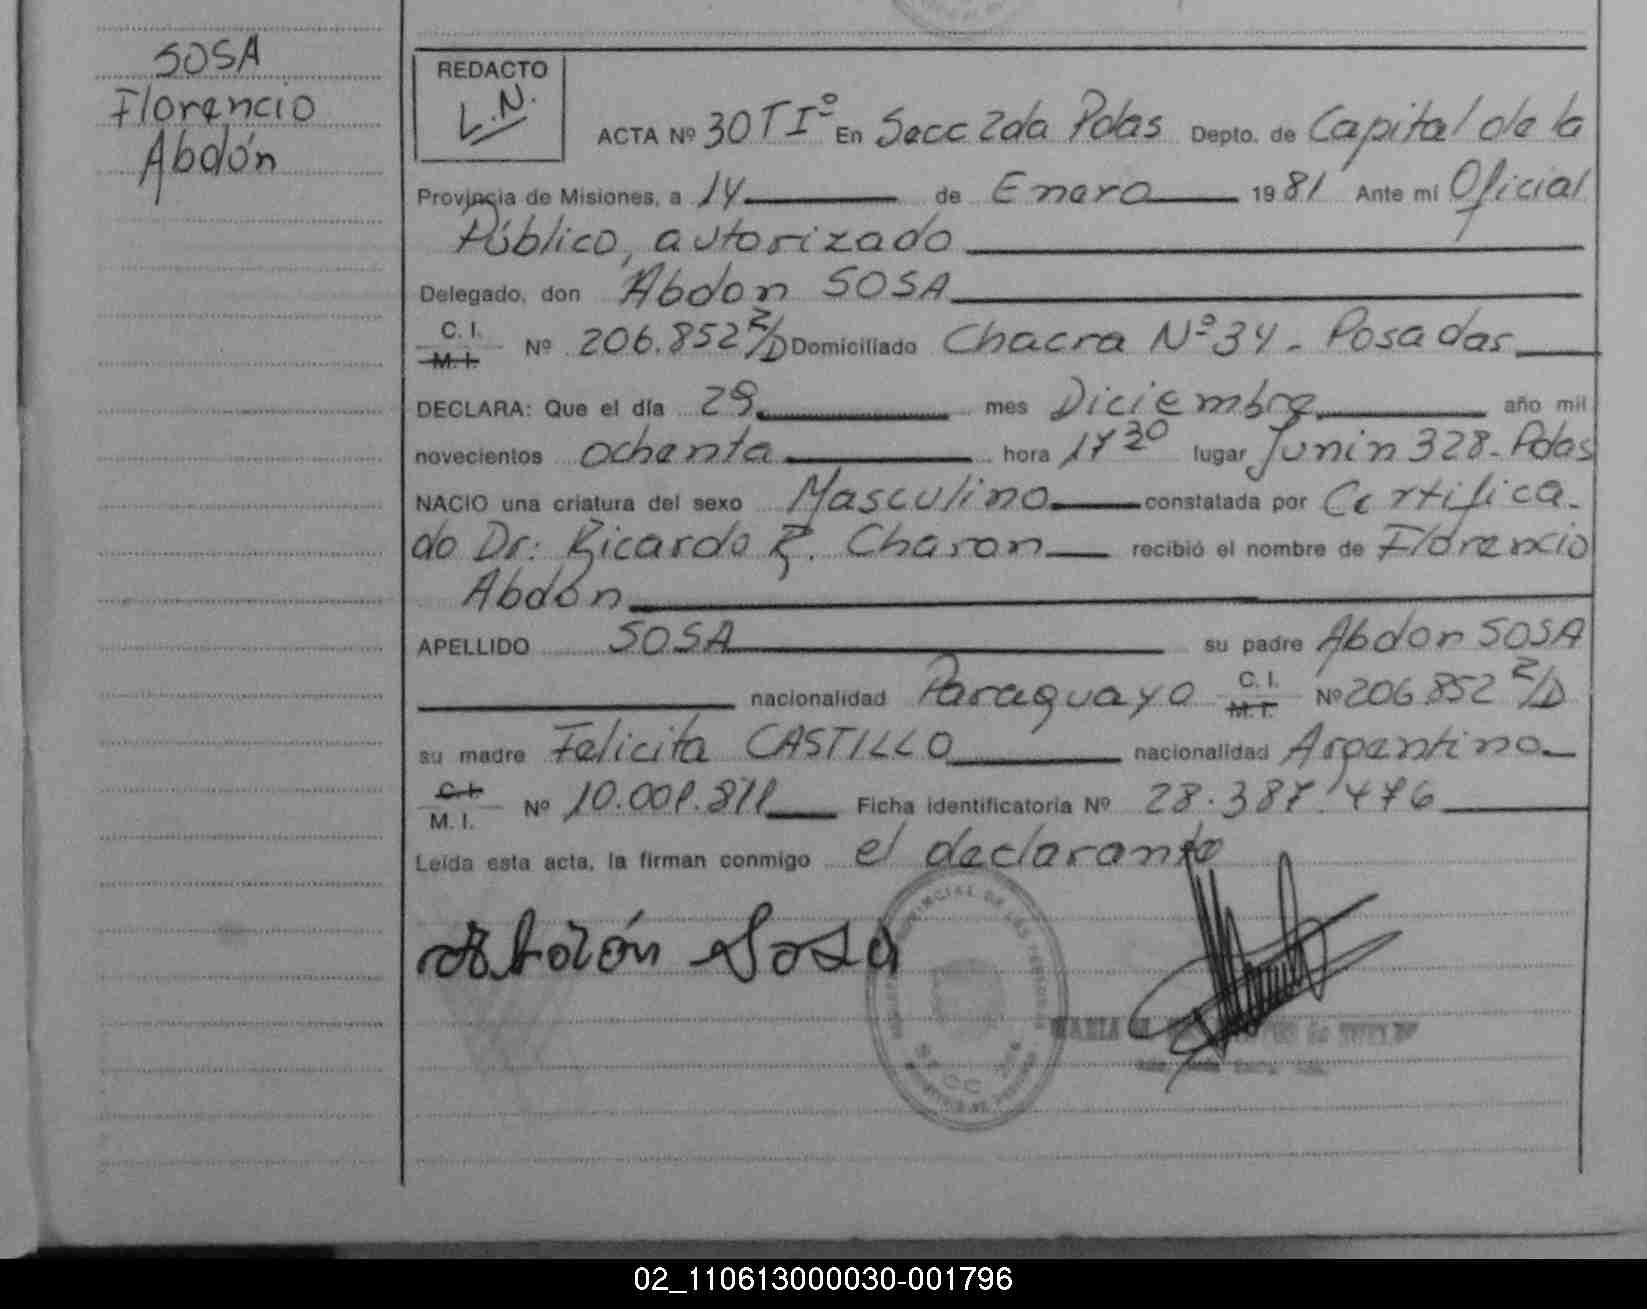 SOSA
Florencio
Abdón
REDACTO
L.N.
ACTA Nº 30 TIº En Secc 2da Pdas Depto. de Capital de la
Provincia de Misiones, a 14 de Enero 1981 Ante mi Oficial
Público, autorizado
Delegado, don Abdon SOSA
C. I.
M. I. Nº 206.852 P/D Domiciliado Chacra Nº 34 - Posadas
DECLARA: Que el día 29 mes Diciembre año mil
novecientos ochenta hora 17 30 lugar Junin 328 - Pdas
NACIO una criatura del sexo Masculino constatada por Certifica-
do Dr: Ricardo Charon recibió el nombre de Florencio
Abdón
APELLIDO SOSA su padre Abdon SOSA
nacionalidad Paraguayo C. I.
M. I. Nº 206852 P/D
su madre Felicita CASTILLO nacionalidad Argentino
C. I.
M. I. Nº 10.001.811 Ficha identificatoria Nº 28.387.476
Leída esta acta, la firman conmigo el declarante
Abdón Sosa
02_110613000030-001796